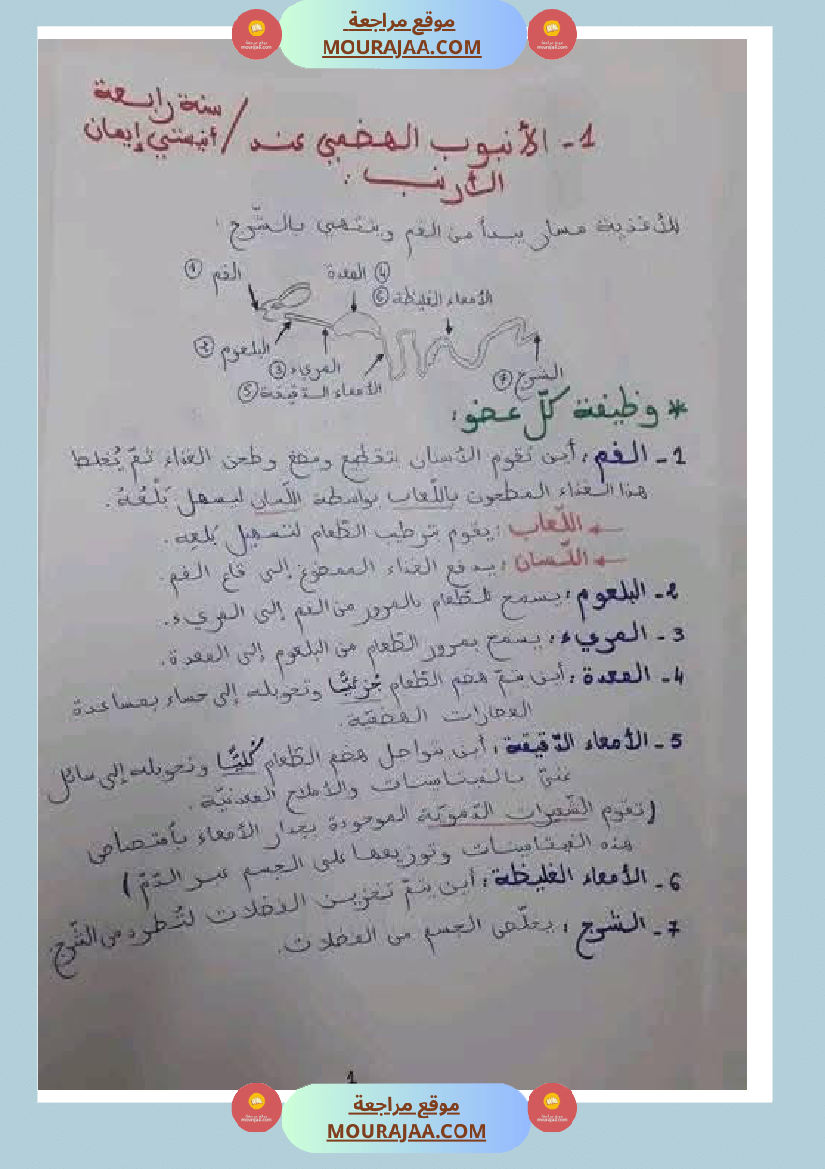 موقع مراجعة
MOURAJAA.COM
سنة رابعة
1- الأنبوب الهضمي عند / أنستي إيمان
الأرنب :
للأغذية مسار يبدأ من الفم وينتهي بالشّرج .
① الفم
④ المعدة
⑥ الأمعاء الغليظة
② البلعوم
③ المريء
⑤ الأمعاء الدّقيقة
⑦ الشرج
* وظيفة كلّ عضو :
1- الفم : أين تقوم الأسنان بتقطيع ومضغ وطحن الغذاء ثمّ يُخلط
هذا الغذاء المطحون باللّعاب بواسطة اللّسان ليسهل بَلْعُهُ .
← اللّعاب : يقوم بترطيب الطّعام لتسهيل بَلعِه .
← اللّسان : يدفع الغذاء الممضوغ إلى قاع الفم .
2- البلعوم : يسمح للطّعام بالمرور من الفم إلى المريء .
3- المريء : يسمح بمرور الطّعام من البلعوم إلى المعدة .
4- المعدة : أين يتمّ هضم الطّعام جُزئيًّا وتحويله إلى حساء بمساعدة
العصارات الهضميّة .
5- الأمعاء الدّقيقة : أين يتواصل هضم الطّعام كُلّيًّا وتحويله إلى سائل
غنيّ بالفيتامينات والأملاح المعدنيّة .
(تقوم الشّعيرات الدّمويّة الموجودة بجدار الأمعاء بامتصاص
هذه الفيتامينات وتوزيعها على الجسم عبر الدّمّ)
6- الأمعاء الغليظة : أين يتمّ تخزين الفضلات لتُطرد من الشّرج .
7- الشرج : يخلّص الجسم من الفضلات .
1
موقع مراجعة
MOURAJAA.COM